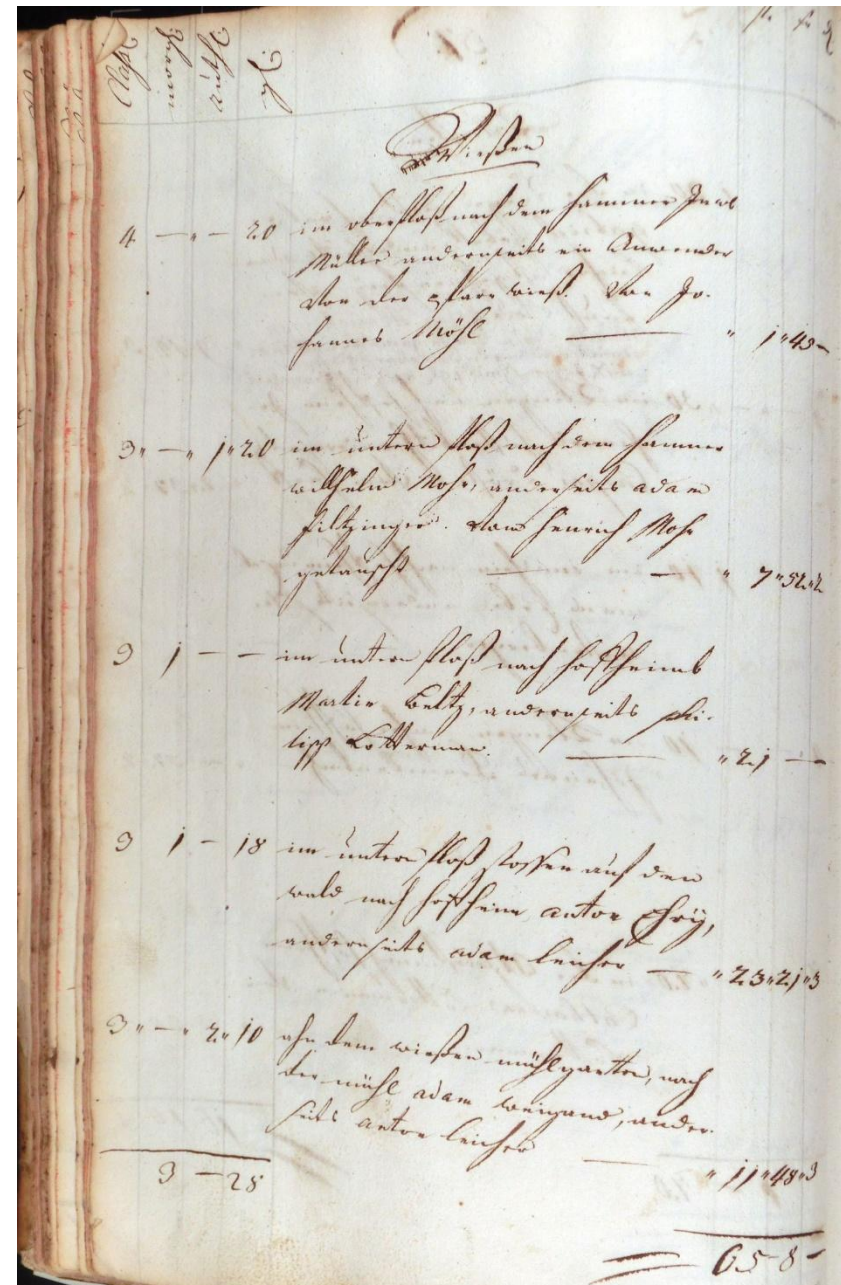 Claß Morgen Virtl. Rh. fl. x. ₰
Wießen
4 — " — 20 im oberfloß nach dem hammer
Müller anderseits ein Anwender
Von der Pfarr wieß. Von Jo-
hannes Möhl — " 1 " 45 —
3 " — " 1 " 20 im untern floß nach dem hammer
willhelm Mohr, anderseits adam
filtzinger. Vom Henrich Mohr
getauscht — — " 7 " 52 " 2
3 1 — — im untern floß nach hoffheim
Martin Beltz, anderseits phi-
lipp Lotterman. — " 21 — —
3 1 — 18 im untern floß stossen auf den
wald nach hoffheim anton
anderseits adam leicher — " 23 " 21 " 3
3 " — " 2 " 10 ahn dem wießen mühlgarten, nach
der mühl adam weigand, ander-
seits anton leicher — " 11 " 48 " 3
3 — 28
65 - 8 -